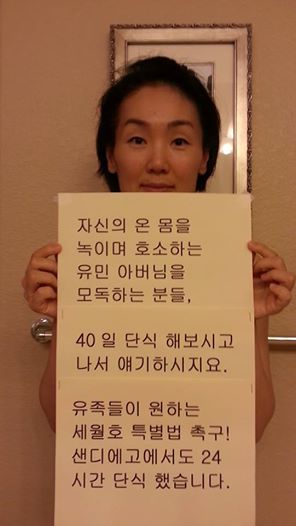 자신의 온 몸을
녹이며 호소하는
유민 아버님을
모독하는 분들,
40 일 단식 해보시고
나서 얘기하시지요.
유족들이 원하는
세월호 특별법 촉구!
샌디에고에서도 24
시간 단식 했습니다.